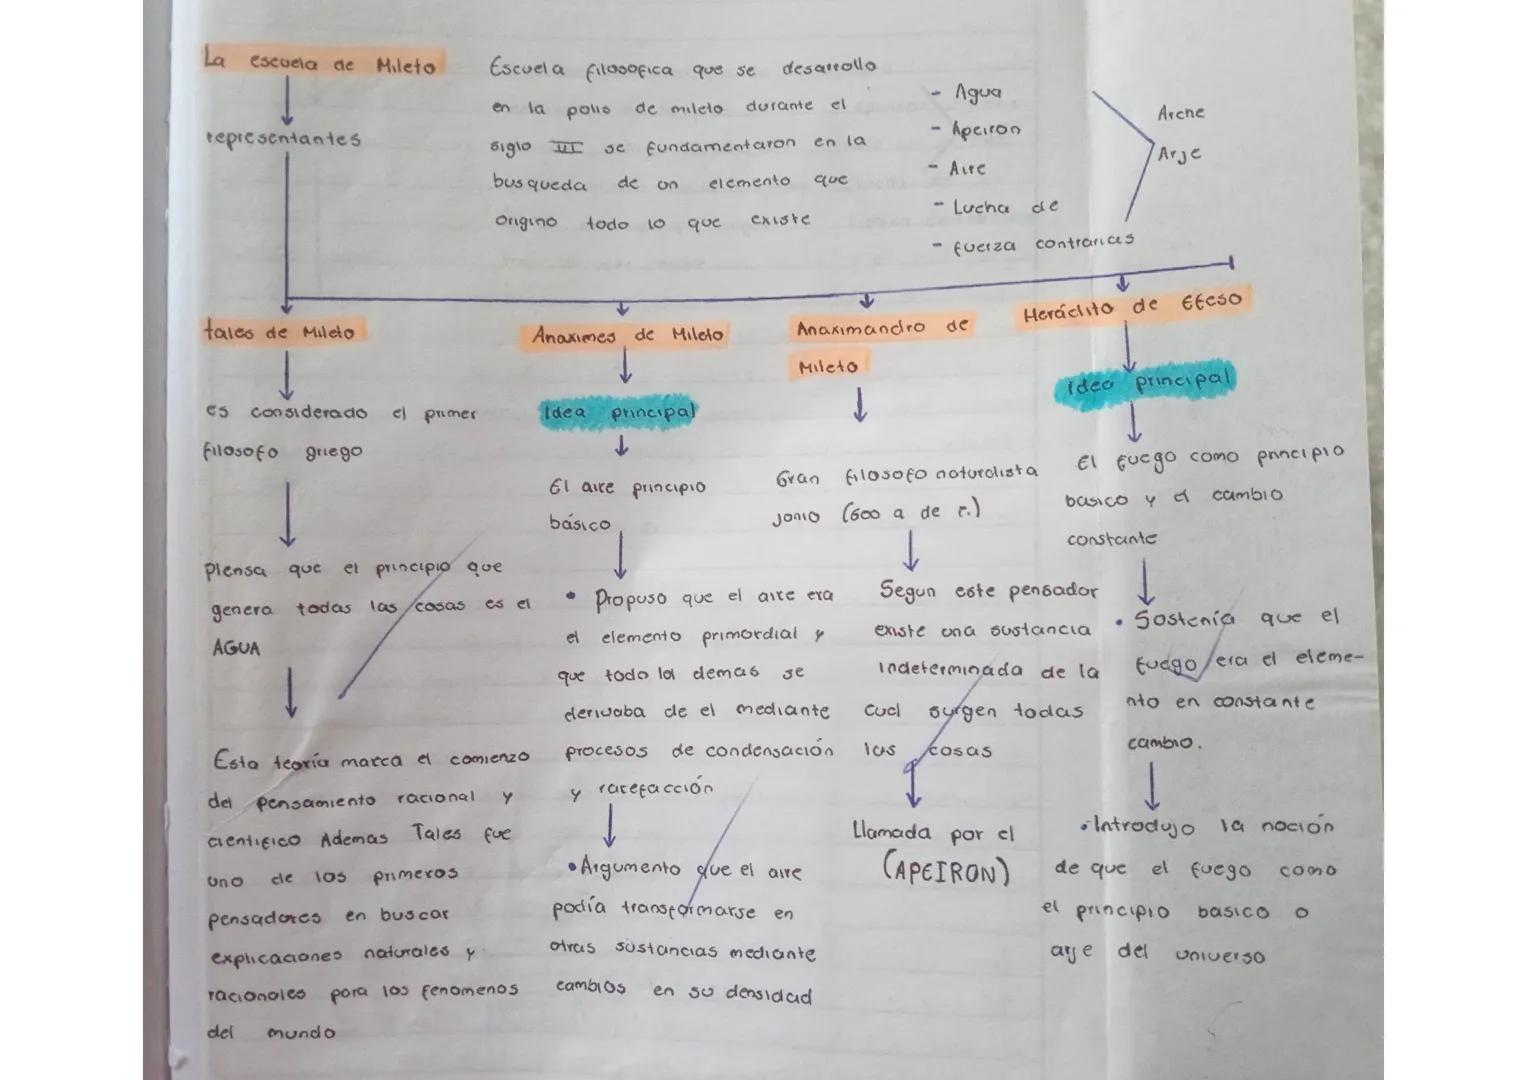 La escuela de Mileto
representantes
Escuela filosofica que se desarrollo
en la polis de mileto durante el
siglo III se fundamentaron en la
busqueda de un elemento que
origino todo lo que existe
- Agua
- Apeiron
- Aire
- Lucha de
- fuerza contrarias
Arche
Arje
tales de Mileto
es considerado el primer
filosofo griego
Piensa que el principio que
genera todas las cosas es el
AGUA
Esta teoría marca el comienzo
del pensamiento racional y
cientifico Ademas Tales fue
uno de los primeros
pensadores en buscar
explicaciones naturales y
racionales para los fenomenos
del mundo
Anaximes de Mileto
Idea principal
El aire principio
básico
• Propuso que el aire era
el elemento primordial y
que todo lo demas se
derivaba de el mediante
procesos de condensación
y rarefacción
• Argumento que el aire
podía transformarse en
otras sustancias mediante
cambios en su densidad
Anaximandro de
Mileto
Gran filosofo naturalista
jonio (600 a de c.)
Segun este pensador
existe una sustancia
indeterminada de la
cual surgen todas
las cosas
Llamada por el
(APEIRON)
Heráclito de Efeso
idea principal
El fuego como principio
basico y el cambio
constante
• Sostenía que el
fuego era el eleme-
nto en constante
cambio.
• Introdujo la noción
de que el fuego como
el principio basico o
arje del universo